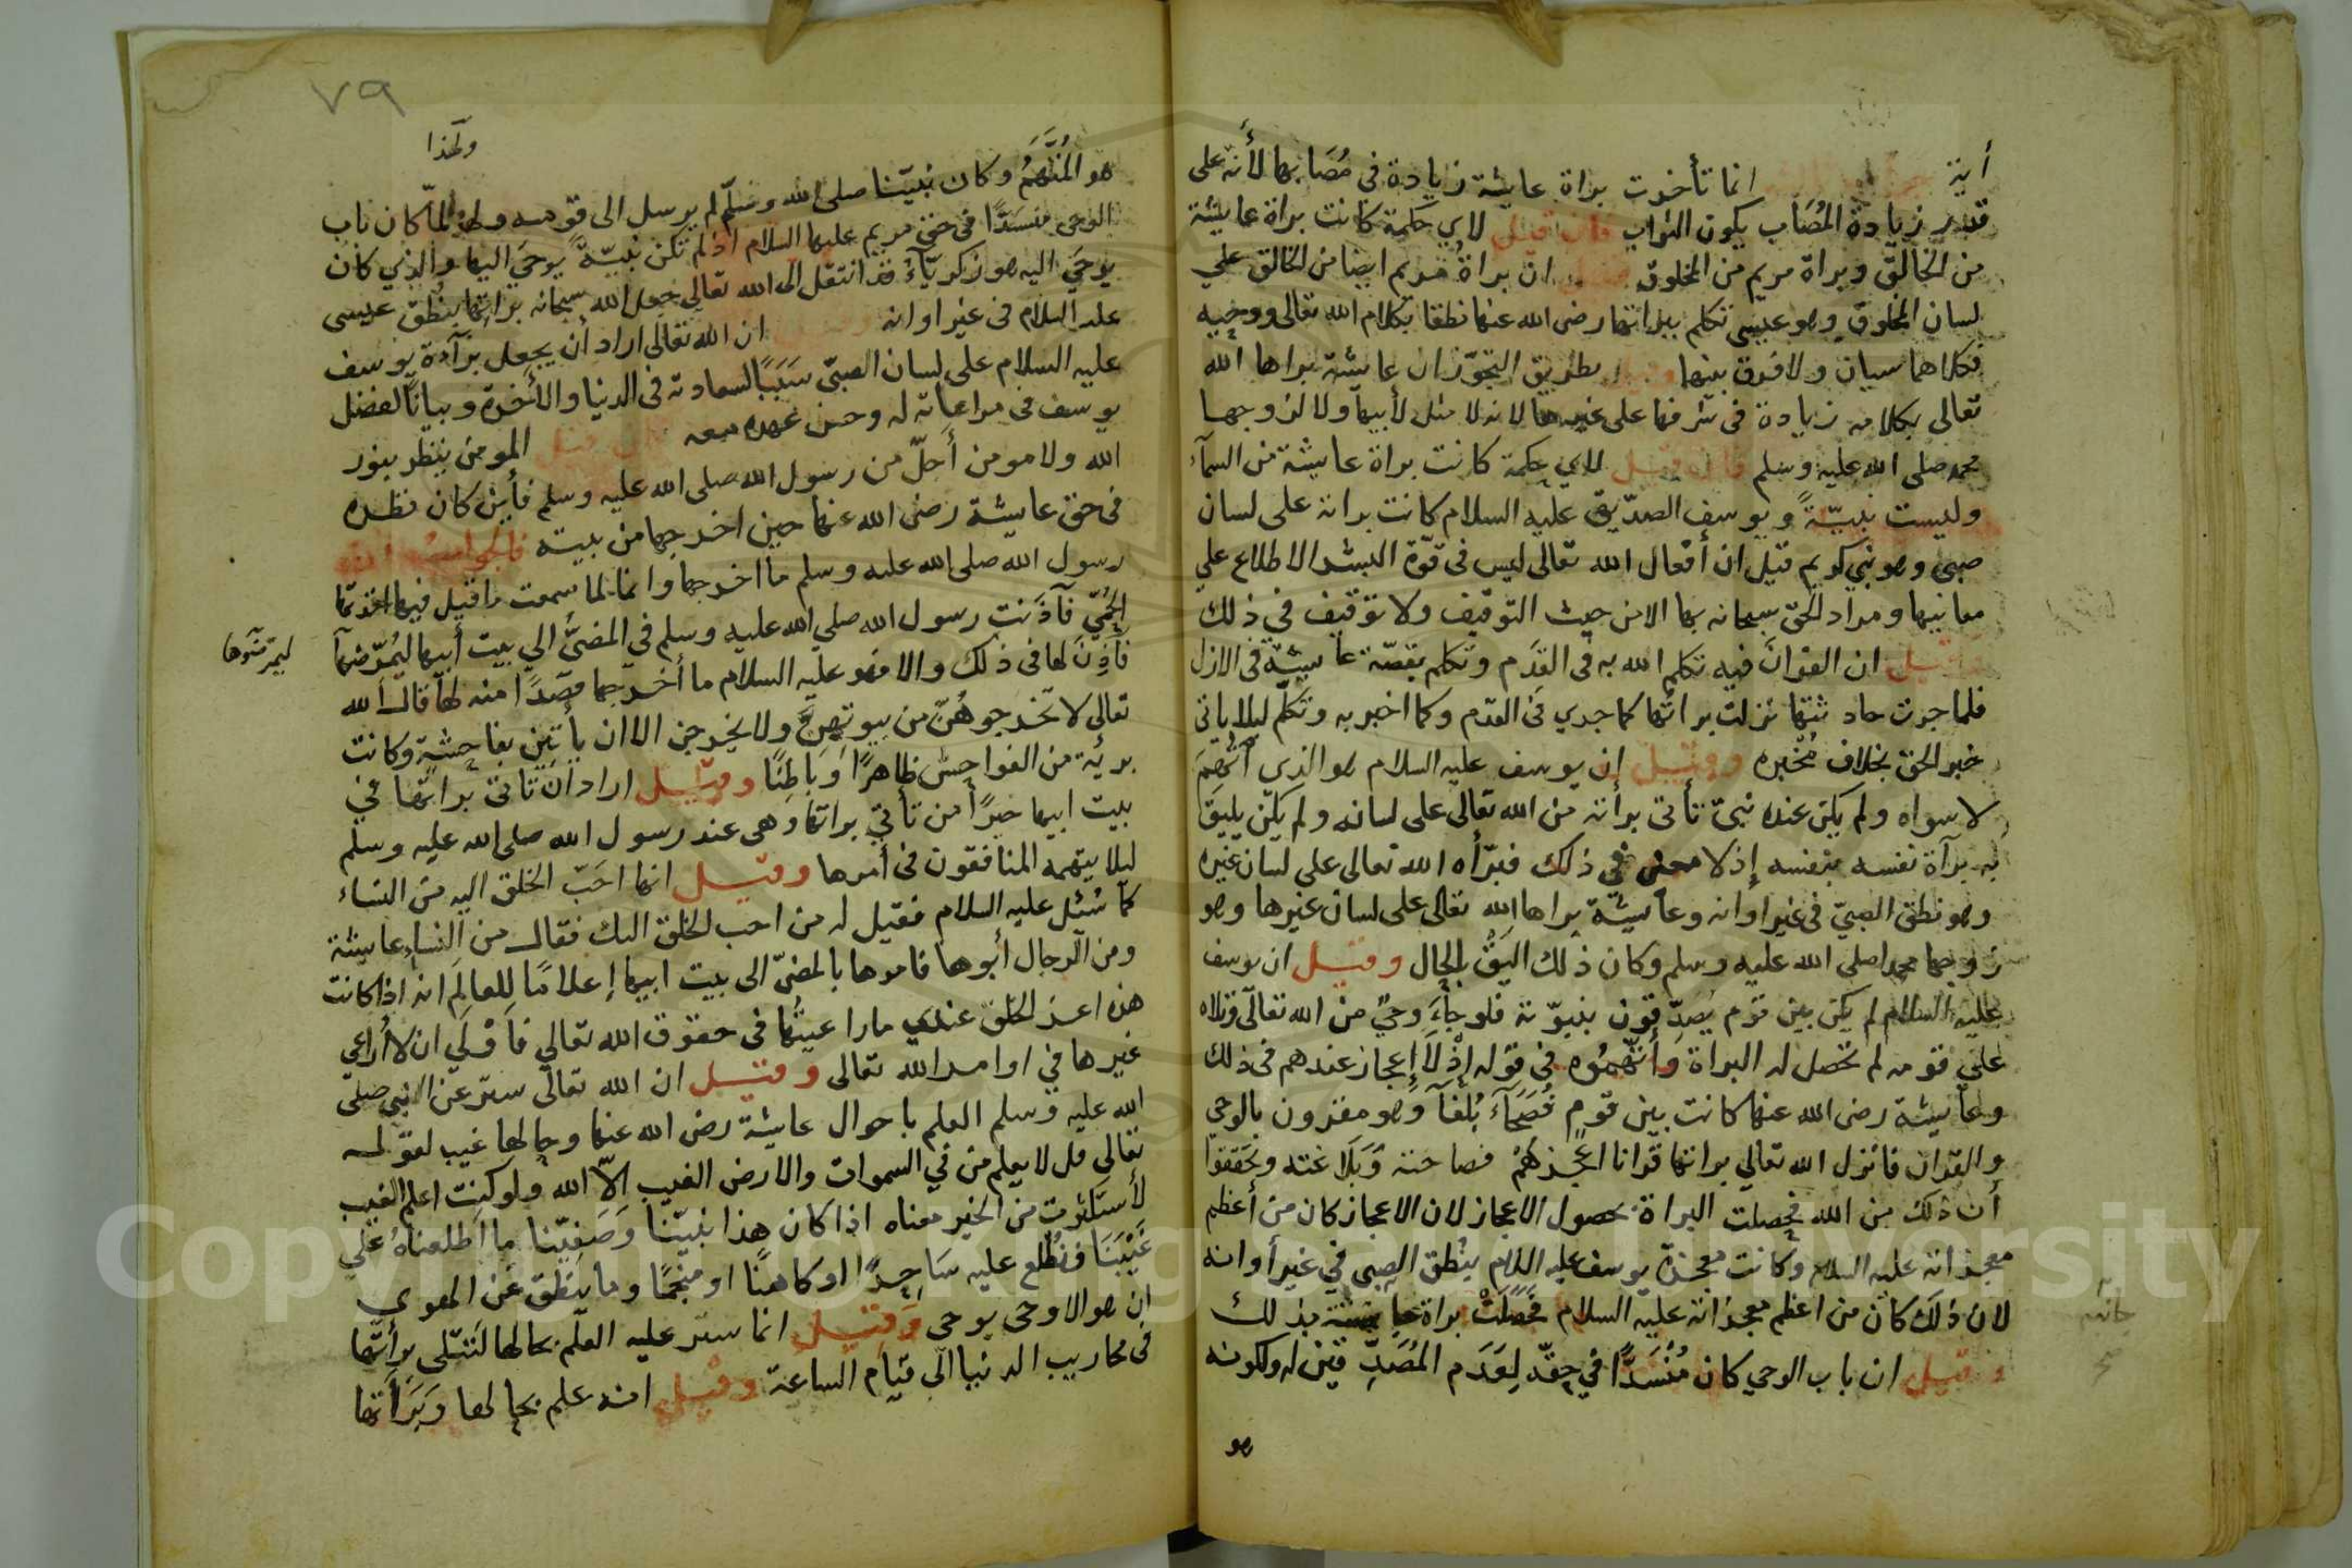 أية انما تأخرت براة عايشة زيادة فى مُصَابها لأنه على
قدر زيادة المُصَاب يكون الثواب فان قيل لاي حكمة كانت براة عايشة
من الخالق وبراة مريم من المخلوق ان براةُ مريم ايضا من الخالق علي
لسان المخلوق وهو عيسى تكلم ببراتها رضى الله عنها نطقا بكلام الله تعالى ووحيه
فكلاهما سيان ولا فرق بينهما بطريق التجوّز ان عايشة براها الله
تعالى بكلامه زيادة فى شرفها على غيرها لانه لا مثل لأبيها ولا لزوجها
محمد صلى الله عليه وسلم فان قيل لاي حكمة كانت براة عايشة من السمآء
وليست نبيّةً ويوسف الصدّيق عليه السلام كانت براته على لسان
صبي وهو نبي كريم قيل ان أفعال الله تعالى ليس فى قوّة البشر الاطلاع علي
معانيها ومراد الحق سبحانه بها الا من حيث التوقيف ولا توقيف في ذلك
وقيل ان القرآن فيه تكلم الله به فى القِدَم وتكلم بقصّة عايشة فى الازل
فلما جرت حادثتها نزلت براتها كما جري فى القدم وكما اخبر به وتكلّم ليلا ياتى
خبر الحق بخلاف مُخْبَره وقيل إن يوسف عليه السلام هو الذي اتُّهِمَ
لا سواه ولم يكن عنده نبيّ تأتى براته من الله تعالى على لسانه ولم يكن يليق
به برآة نفسه بنفسه إذ لا معنى في ذلك فبرّأه الله تعالى على لسان غيره
وهو نطق الصبيّ فى غير اوانه وعايشة براها الله تعالى على لسان غيرها وهو
زوجها محمد صلى الله عليه وسلم وكان ذلك اليَقُ بالحال وقيل ان يوسف
عليه السلام لم يكن بين قوم يُصدّقون بنبوّته فلو جآءَ وحيٌ من الله تعالى وتلاه
على قومه لم تحصل له البراة وأتّهمُوه فى قوله إذْ لَا إعجاز عندهم فى ذلك
وعايشة رضى الله عنها كانت بين قومٍ فُصَحَآءَ بُلغَآ وهو مقرون بالوحي
والقران فانزل الله تعالي براتها قرانا اعجزهُمْ فصاحته وَبَلَاغته وتحققوا
أن ذلك من الله فحصلت البراة بحصول الاعجاز لان الاعجاز كان من أعظم
معجزاته عليه السلام وكانت معجزة يوسف عليه السلام بنُطق الصبى في غير أوانه
لان ذلك كان من اعظم معجزاته عليه السلام فحَصَلَتْ براة عايشة بذلك
وقيل ان باب الوحي كان مُنْسَدًّا في حِقّه لِعَدَم المُصَدِّقين له ولكونه
هو
٧٩
ولهذا
هو المُتَّهَمُ وكان نبيّنا صلى الله وسلّم لم يرسل الى قومه ولهذا لمّا كان باب
الوحى منسَدًّا فى حق مريم عليها السلام اذ لم تكن نبيّةً يوحَى اليها والذي كان
يوحَى اليه هو زكريّآءُ قد انتقل الى الله تعالي جعل الله سبحانه براتها بنُطق عيسى
عليه السلام فى غير اوانه ان الله تعالى اراد أن يجعل برآءة يوسف
عليه السلام على لسان الصبيّ سَبَبًا لسعادته فى الدنيا والأخرة وبيانًا لفضل
يوسف فى مراعاته له وحسن عهده معه فان قيل المومن ينظر بنور
الله ولا مومن أجلّ من رسول الله صلى الله عليه وسلم فأين كان نظره
فى حق عايشة رضى الله عنها حين اخرجها من بيته فالجواب ان
رسول الله صلى الله عليه وسلم ما اخرجها وانما لما سمعت ما قيل فيها اخذتها
الحُمّى فآذَنت رسول الله صلي الله عليه وسلم في المضىّ الى بيت أبيها ليُمرّضها
ليمرضوها
فأذِنَ لها فى ذلك والا فهو عليه السلام ما أخرجها قصْدًا منه لها قال الله
تعالى لا تخرجوهُنّ من بيوتهِنَّ ولا يخرجن الا ان يأتين بفاحشةٍ وكانت
بريّة من الفواحش ظاهرًا وَبَاطِنًا وقيل اراد أن تاتى براتها في
بيت ابيها خيرًا من تأتي براتها وهى عند رسول الله صلى الله عليه وسلم
ليلا يتهمه المنافقون فى أمرها وقيل انها احَبّ الخلق اليه من النساء
كما سُئل عليه السلام فقيل له من احب الخلق اليك فقال من النساءِ عايشة
ومن الرجال أبوها فامرها بالمضىّ الى بيت ابيها إعلامًا للعالَمِ انه اذا كانت
هذه اعز الخلق عندي ما راعيتُها فى حقوق الله تعالي فاَوْلَي ان لا أُراعي
غيرها في اوامر الله تعالى وقيل ان الله تعالى ستر عن النبي صلى
الله عليه وسلم العلم باحوال عايشة رضى الله عنها وحالها غيب لقوله
تعالي قل لا يعلم من في السموات والارض الغيب الّا الله ولو كنت اعلم الغيب
لأستكثرت من الخير معناه اذا كان هذا نبيّنا وَصَفيّنا ما اطلعناهُ علي
غَيْبَنَا فنُطلع عليه سَاحِرًا او كاهنًا او منجّمًا وما ينطق عن الهوي
ان هو الا وحى يوحى وقيل انما ستر عليه العلم بحالها لتتلى برأتها
فى محاريب الدنيا الى قيام الساعة وقيل انه علم بحالها وَبَرَأتها